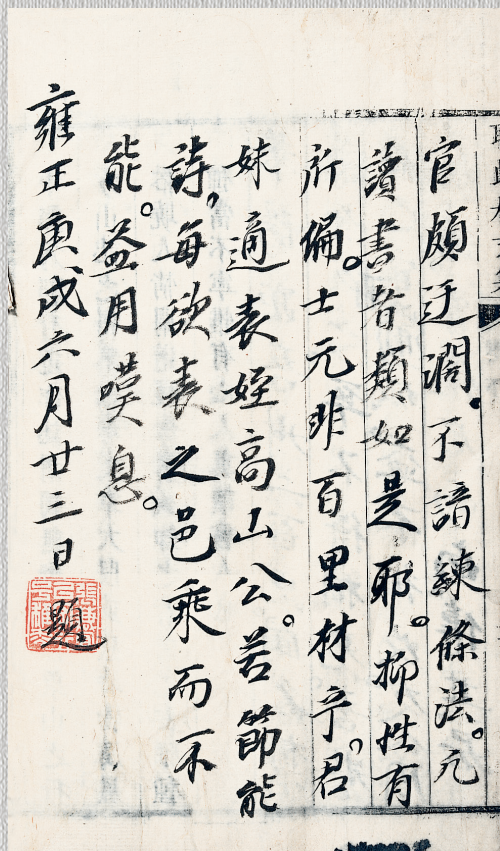 官頗迂濶。不諳練條法。元
讀書者類如是耶。抑性有
所偏。士元非百里材乎，君
妹適表姪高山公。苦節能
詩，每欲表之邑乘而不
能。益用嘆息。
雍正庚戌六月廿三日題